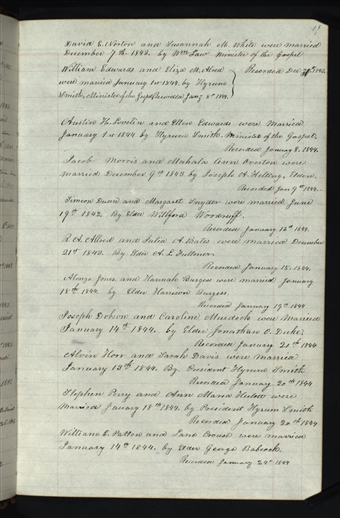 David E. Norton and Susannah M. White were married
December 7th 1843. by Wm Law Minister of the Gospel
Recorded Dec
William Edwards and Eliza M. Allred
were married January 1st 1844. by Hyrum
Smith, Minister of the Gospel Recorded Jany 8th 1844.
Austin H. and Ellen Edwards were Married
January 1st 1844 by Hyrum Smith. Minister of the Gospel.
Recorded January 8. 1844.
Jacob Morris and Mahala Ann Overton were
married December 9th 1843 by Joseph A. Elder.
Recorded Jany 9th 1844.
Simeon and Margaret Snyder were married June
19th 1842. By Elder Willford Woodruff.
Recorded January 12th 1844.
R. A. Allred and Julia A. Bates were married December
21st 1843. by Elder A. L. Fullmer.
Recorded January 15. 1844.
Alonzo Jones and Hannah Burgess were married January
18th 1844. by Elder Harrison Burgess.
Recorded January 19th 1844
Joseph Dobson and Caroline Murdock were Married
January 14th 1844. by Elder Jonathan C. Duke.
Recorded January 20th 1844
Alvin Hoor and Sarah Davis were married
January 13th 1844. By. President Hyrum Smith
Recorded January 20th 1844
Stephen Perry and Ann Maria Hulett were
Married January 18th 1844. by President Hyrum Smith
Recorded January 20th 1844
William E. Patton and Jane Crouse were married
January 14th 1844. by Elder George Babcock.
Recorded January 24th 1844